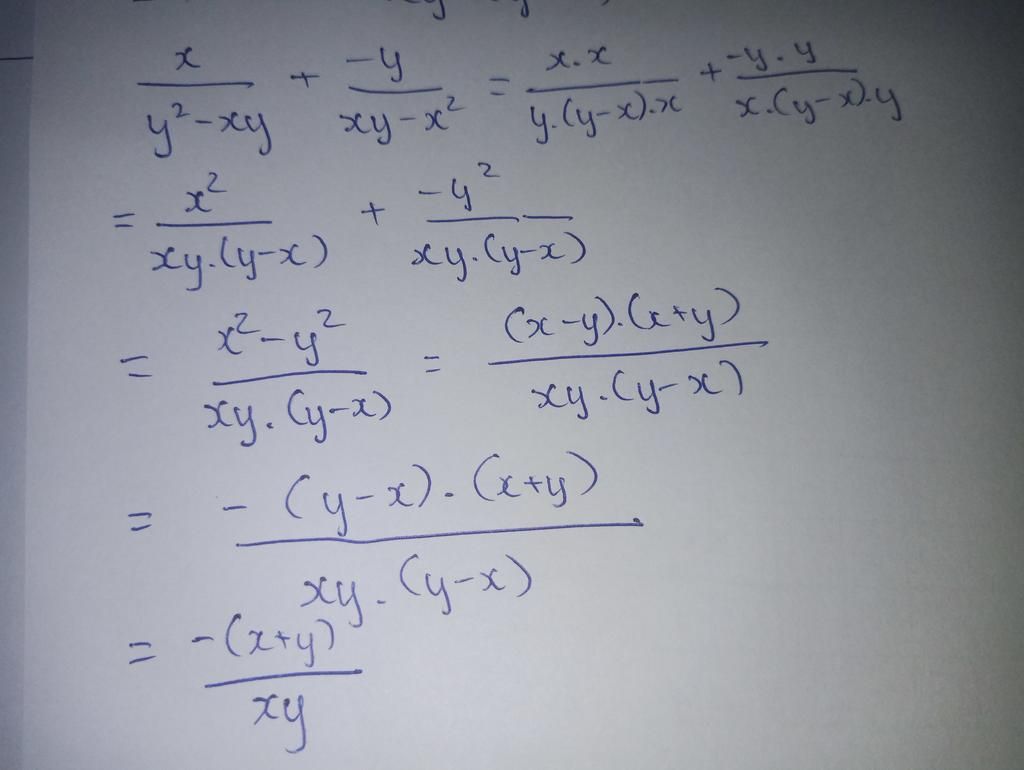 x/(y²-xy) + -y/(xy-x²) = x.x/(y.(y-x).x) + -y.y/(x.(y-x).y)
= x²/(xy.(y-x)) + -y²/(xy.(y-x))
= (x²-y²)/(xy.(y-x)) = (x-y).(x+y)/(xy.(y-x))
= -(y-x).(x+y)/(xy.(y-x))
= -(x+y)/xy